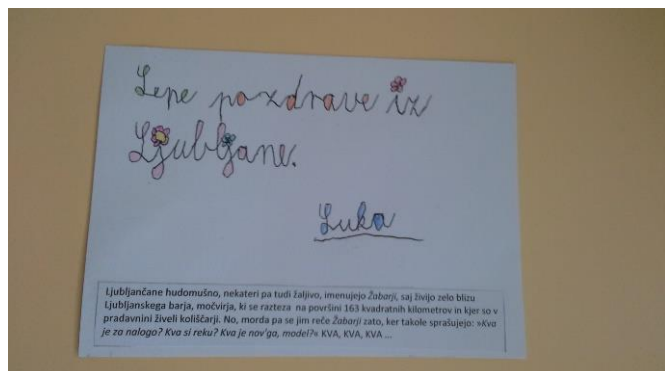 Lepe pozdrave iz
Ljubljane.
Luka
Ljubljančane hudomušno, nekateri pa tudi žaljivo, imenujejo Žabarji, saj živijo zelo blizu
Ljubljanskega barja, močvirja, ki se razteza na površini 163 kvadratnih kilometrov in kjer so v
pradavnini živeli koliščarji. No, morda pa se jim reče Žabarji zato, ker takole sprašujejo: »Kva
je za nalogo? Kva si reku? Kva je nov'ga, model?« KVA, KVA, KVA ...